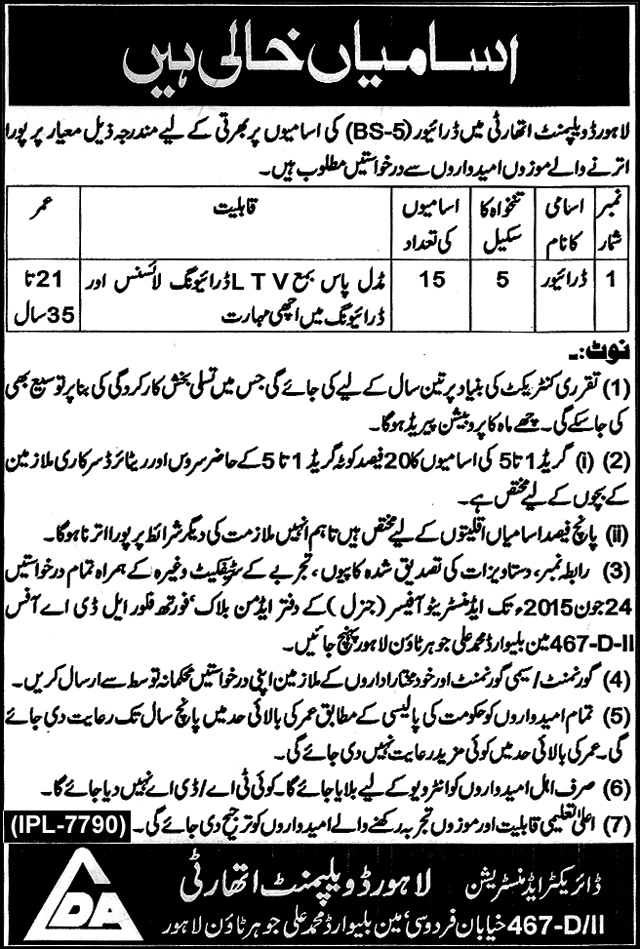 اسامیاں خالی ہیں
لاہور ڈویلپمنٹ اتھارٹی میں ڈرائیور (BS-5) کی اسامیوں پر بھرتی کے لیے مندرجہ ذیل معیار پر پورا
اترنے والے موزوں امیدواروں سے درخواستیں مطلوب ہیں۔
نمبر شمار
اسامی کا نام
تنخواہ کا سکیل
اسامیوں کی تعداد
قابلیت
عمر
1
ڈرائیور
5
15
مڈل پاس بمع LTV ڈرائیونگ لائسنس اور
ڈرائیونگ میں اچھی مہارت
21 تا
35 سال
نوٹ:۔
(1) تقرری کنٹریکٹ کی بنیاد پر تین سال کے لیے کی جائے گی جس میں تسلی بخش کارکردگی کی بنا پر توسیع بھی
کی جا سکے گی۔ چھے ماہ کا پروبیشن پیریڈ ہوگا۔
(2) (i) گریڈ 1 تا 5 کی اسامیوں کا 20 فیصد کوٹہ گریڈ 1 تا 5 کے حاضر سروس اور ریٹائرڈ سرکاری ملازمین
کے بچوں کے لیے مختص ہے۔
(ii) پانچ فیصد اسامیاں اقلیتوں کے لیے مختص ہیں تاہم انہیں ملازمت کی دیگر شرائط پر پورا اترنا ہوگا۔
(3) رابطہ نمبر، دستاویزات کی تصدیق شدہ کاپیوں، تجربے کے سرٹیفکیٹ وغیرہ کے ہمراہ تمام درخواستیں
24 جون 2015ء تک ایڈمنسٹریٹو آفیسر (جنرل) کے دفتر ایڈمن بلاک، فورتھ فلور ایل ڈی اے آفس
467-D-II مین بلیوارڈ محمد علی جوہر ٹاؤن لاہور پہنچ جائیں۔
(4) گورنمنٹ/سیمی گورنمنٹ اور خود مختار اداروں کے ملازمین اپنی درخواستیں محکمانہ توسط سے ارسال کریں۔
(5) تمام امیدواروں کو حکومت کی پالیسی کے مطابق عمر کی بالائی حد میں پانچ سال تک رعایت دی جائے
گی۔ عمر کی بالائی حد میں کوئی مزید رعایت نہیں دی جائے گی۔
(6) صرف اہل امیدواروں کو انٹرویو کے لیے بلایا جائے گا۔ کوئی ٹی اے/ڈی اے نہیں دیا جائے گا۔
(7) اعلیٰ تعلیمی قابلیت اور موزوں تجربہ رکھنے والے امیدواروں کو ترجیح دی جائے گی۔ (IPL-7790)
ڈائریکٹر ایڈمنسٹریشن لاہور ڈویلپمنٹ اتھارٹی
467-D/II خیابان فردوسی، مین بلیوارڈ محمد علی جوہر ٹاؤن لاہور
LDA